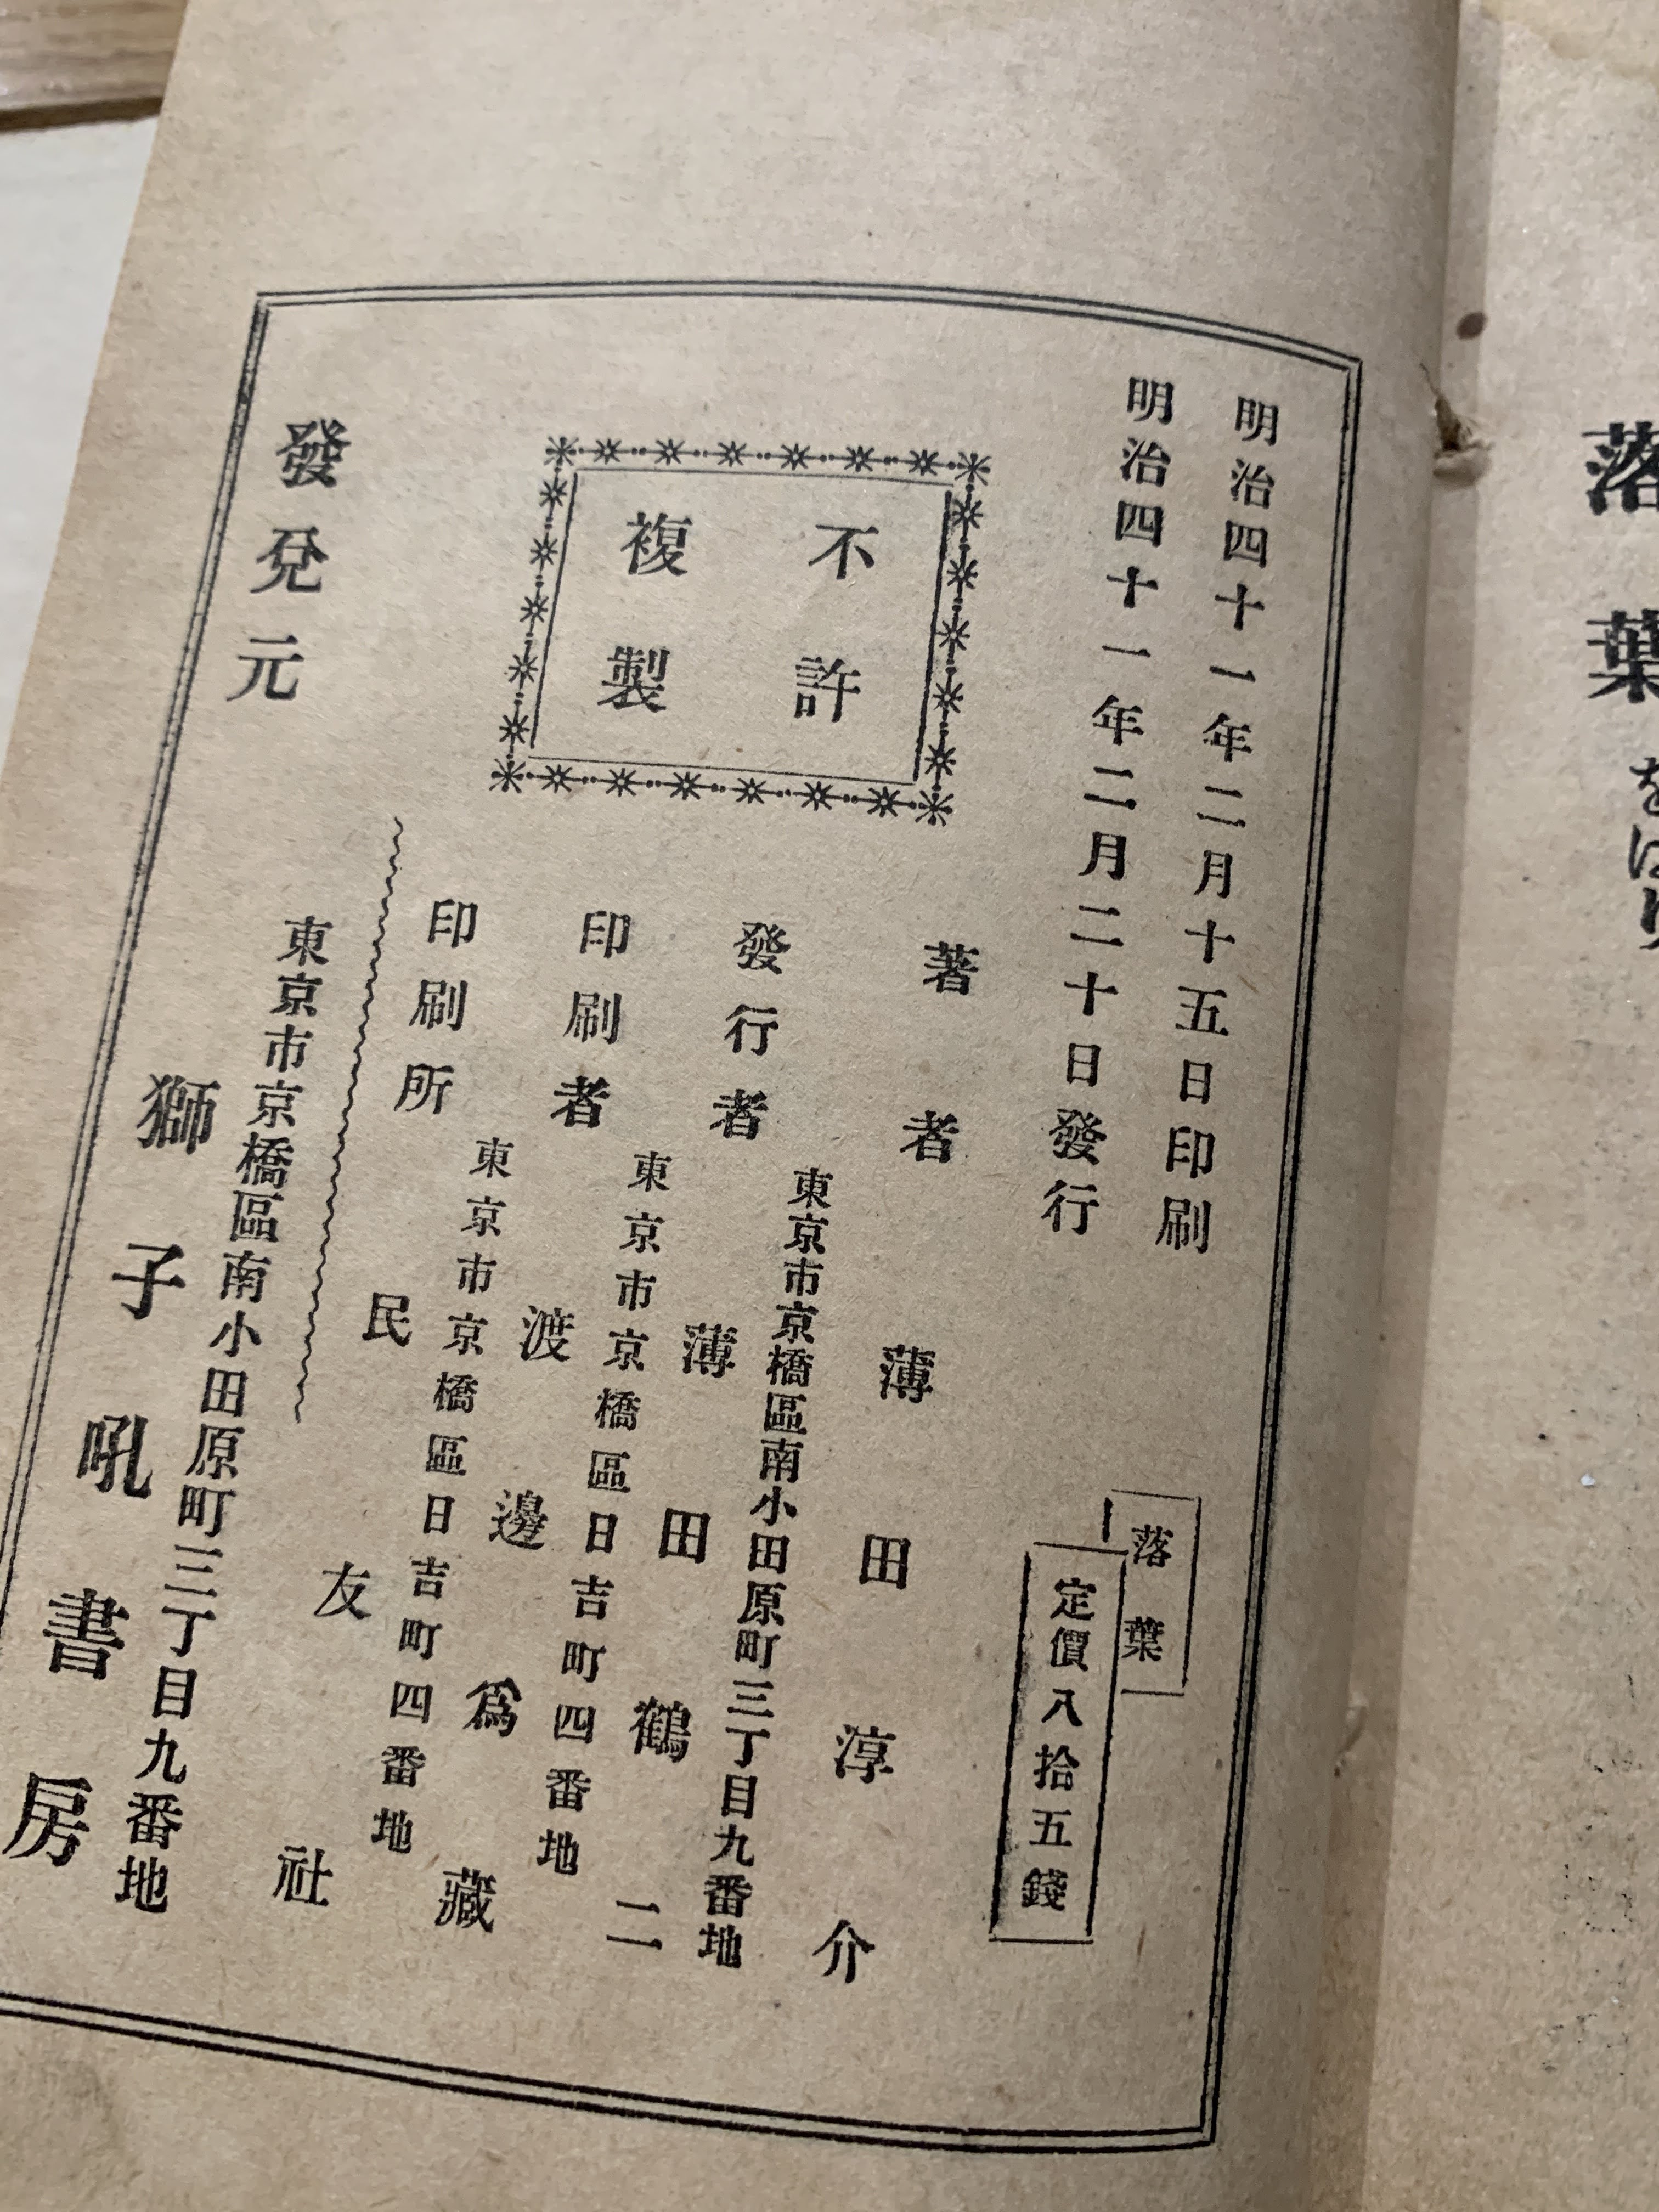 落葉をはり
明治四十一年二月十五日印刷
明治四十一年二月二十日發行
落葉
定價八拾五錢
不許
複製
著者
薄田淳介
東京市京橋區南小田原町三丁目九番地
發行者
薄田鶴二
東京市京橋區日吉町四番地
印刷者
渡邊爲藏
東京市京橋區日吉町四番地
印刷所
民友社
發兌元
東京市京橋區南小田原町三丁目九番地
獅子吼書房